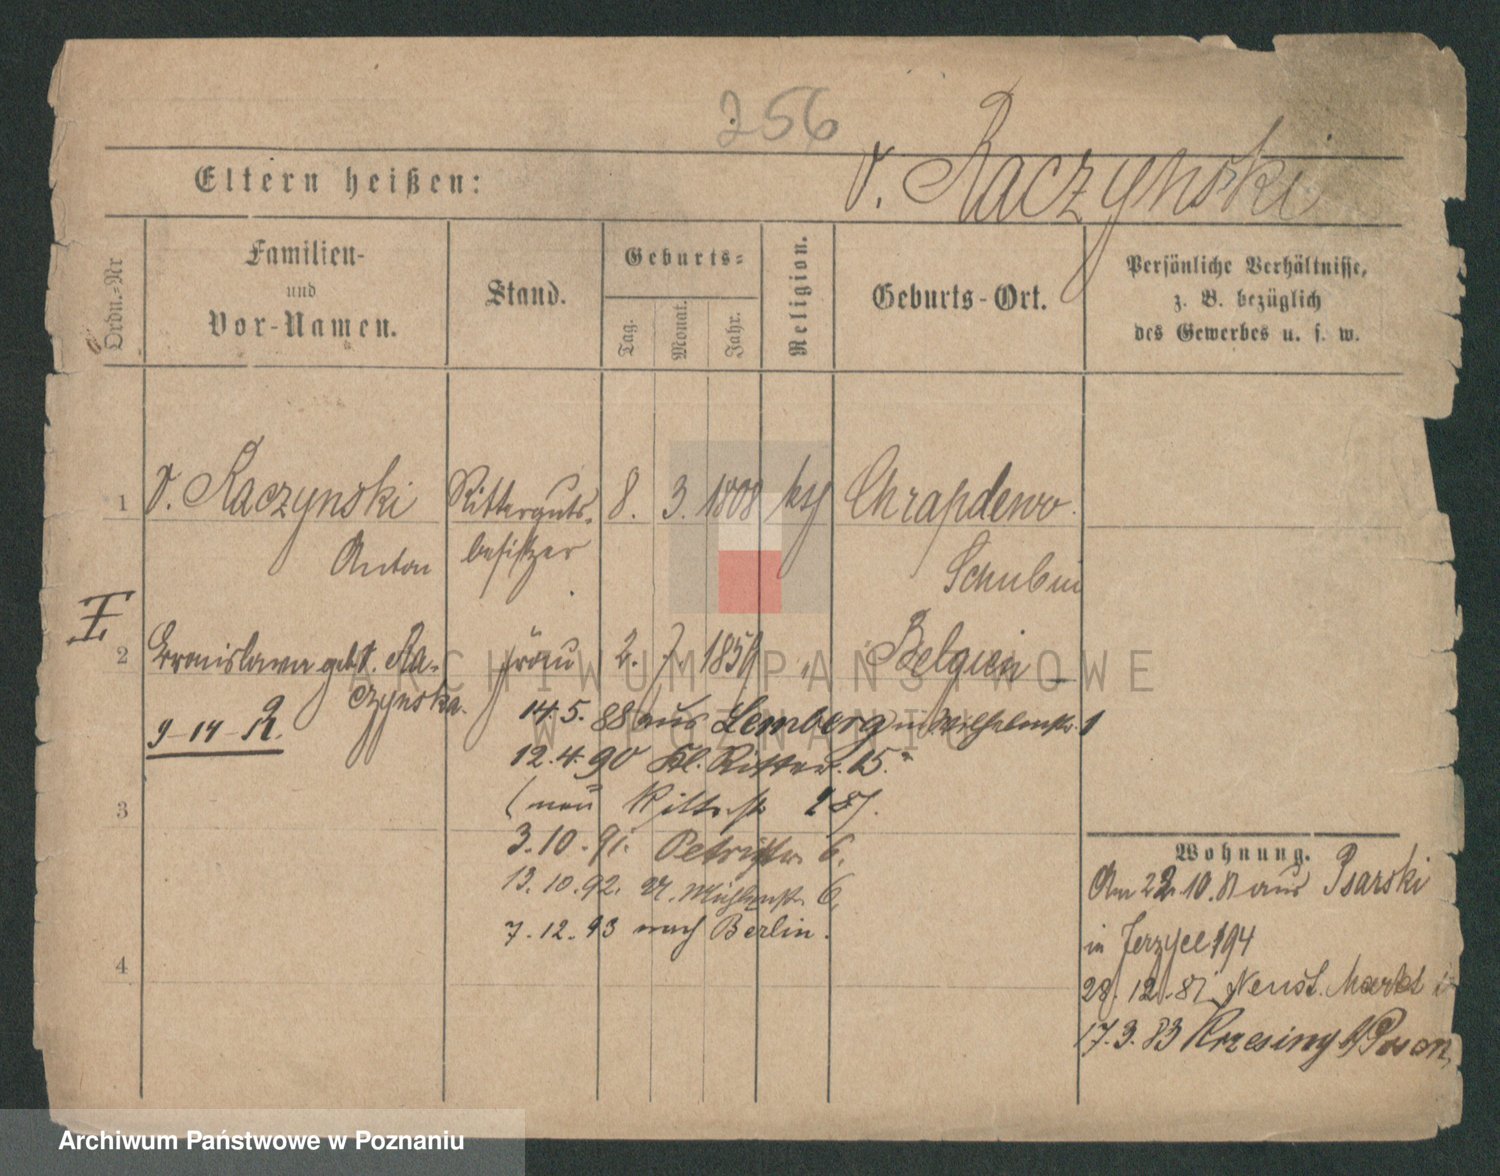 256
v. Raczynski
Eltern heißen:
Ordn.-Nr
Familien-
und
Vor-Namen.
Stand.
Geburts-
Tag.
Monat.
Jahr.
Religion.
Geburts-Ort.
Persönliche Verhältnisse,
z. B. bezüglich
des Gewerbes u. s. w.
1 v. Raczynski Ritterguts- 8. 3. 1808 Chrapdewo
Anton besitzer Schubin
I
2 Bronislawa geb. v. Ra- Frau 2. 7. 1859 " Belgien
czynska.
9-14-R.
14.5.88 aus Lemberg n Wilhelmstr. 1
12.4.90 Kl. Ritterstr. 15.
(neu Ritterstr
3
3.10.91. Petristr. 6.
13.10.92. U. Mühlenstr. 6,
7.12.93 nach Berlin.
4
Wohnung.
Am 22.10.81 aus Psarski
in Jerzyce 194
28.12.81 Neust. Markt
17.3.83 Krzesiny b/Posen
ARCHIWUM PAŃSTWOWE
W POZNANIU
Archiwum Państwowe w Poznaniu